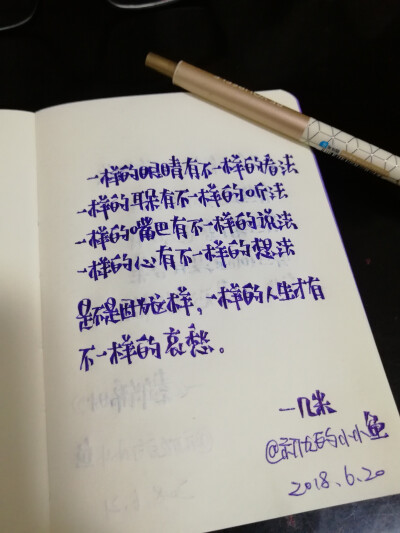 一样的眼睛有不一样的看法
一样的耳朵有不一样的听法
一样的嘴巴有不一样的说法
一样的心有不一样的想法
是不是因为这样，一样的人生才有
不一样的哀愁。
一几米
的小小鱼
2018.6.20